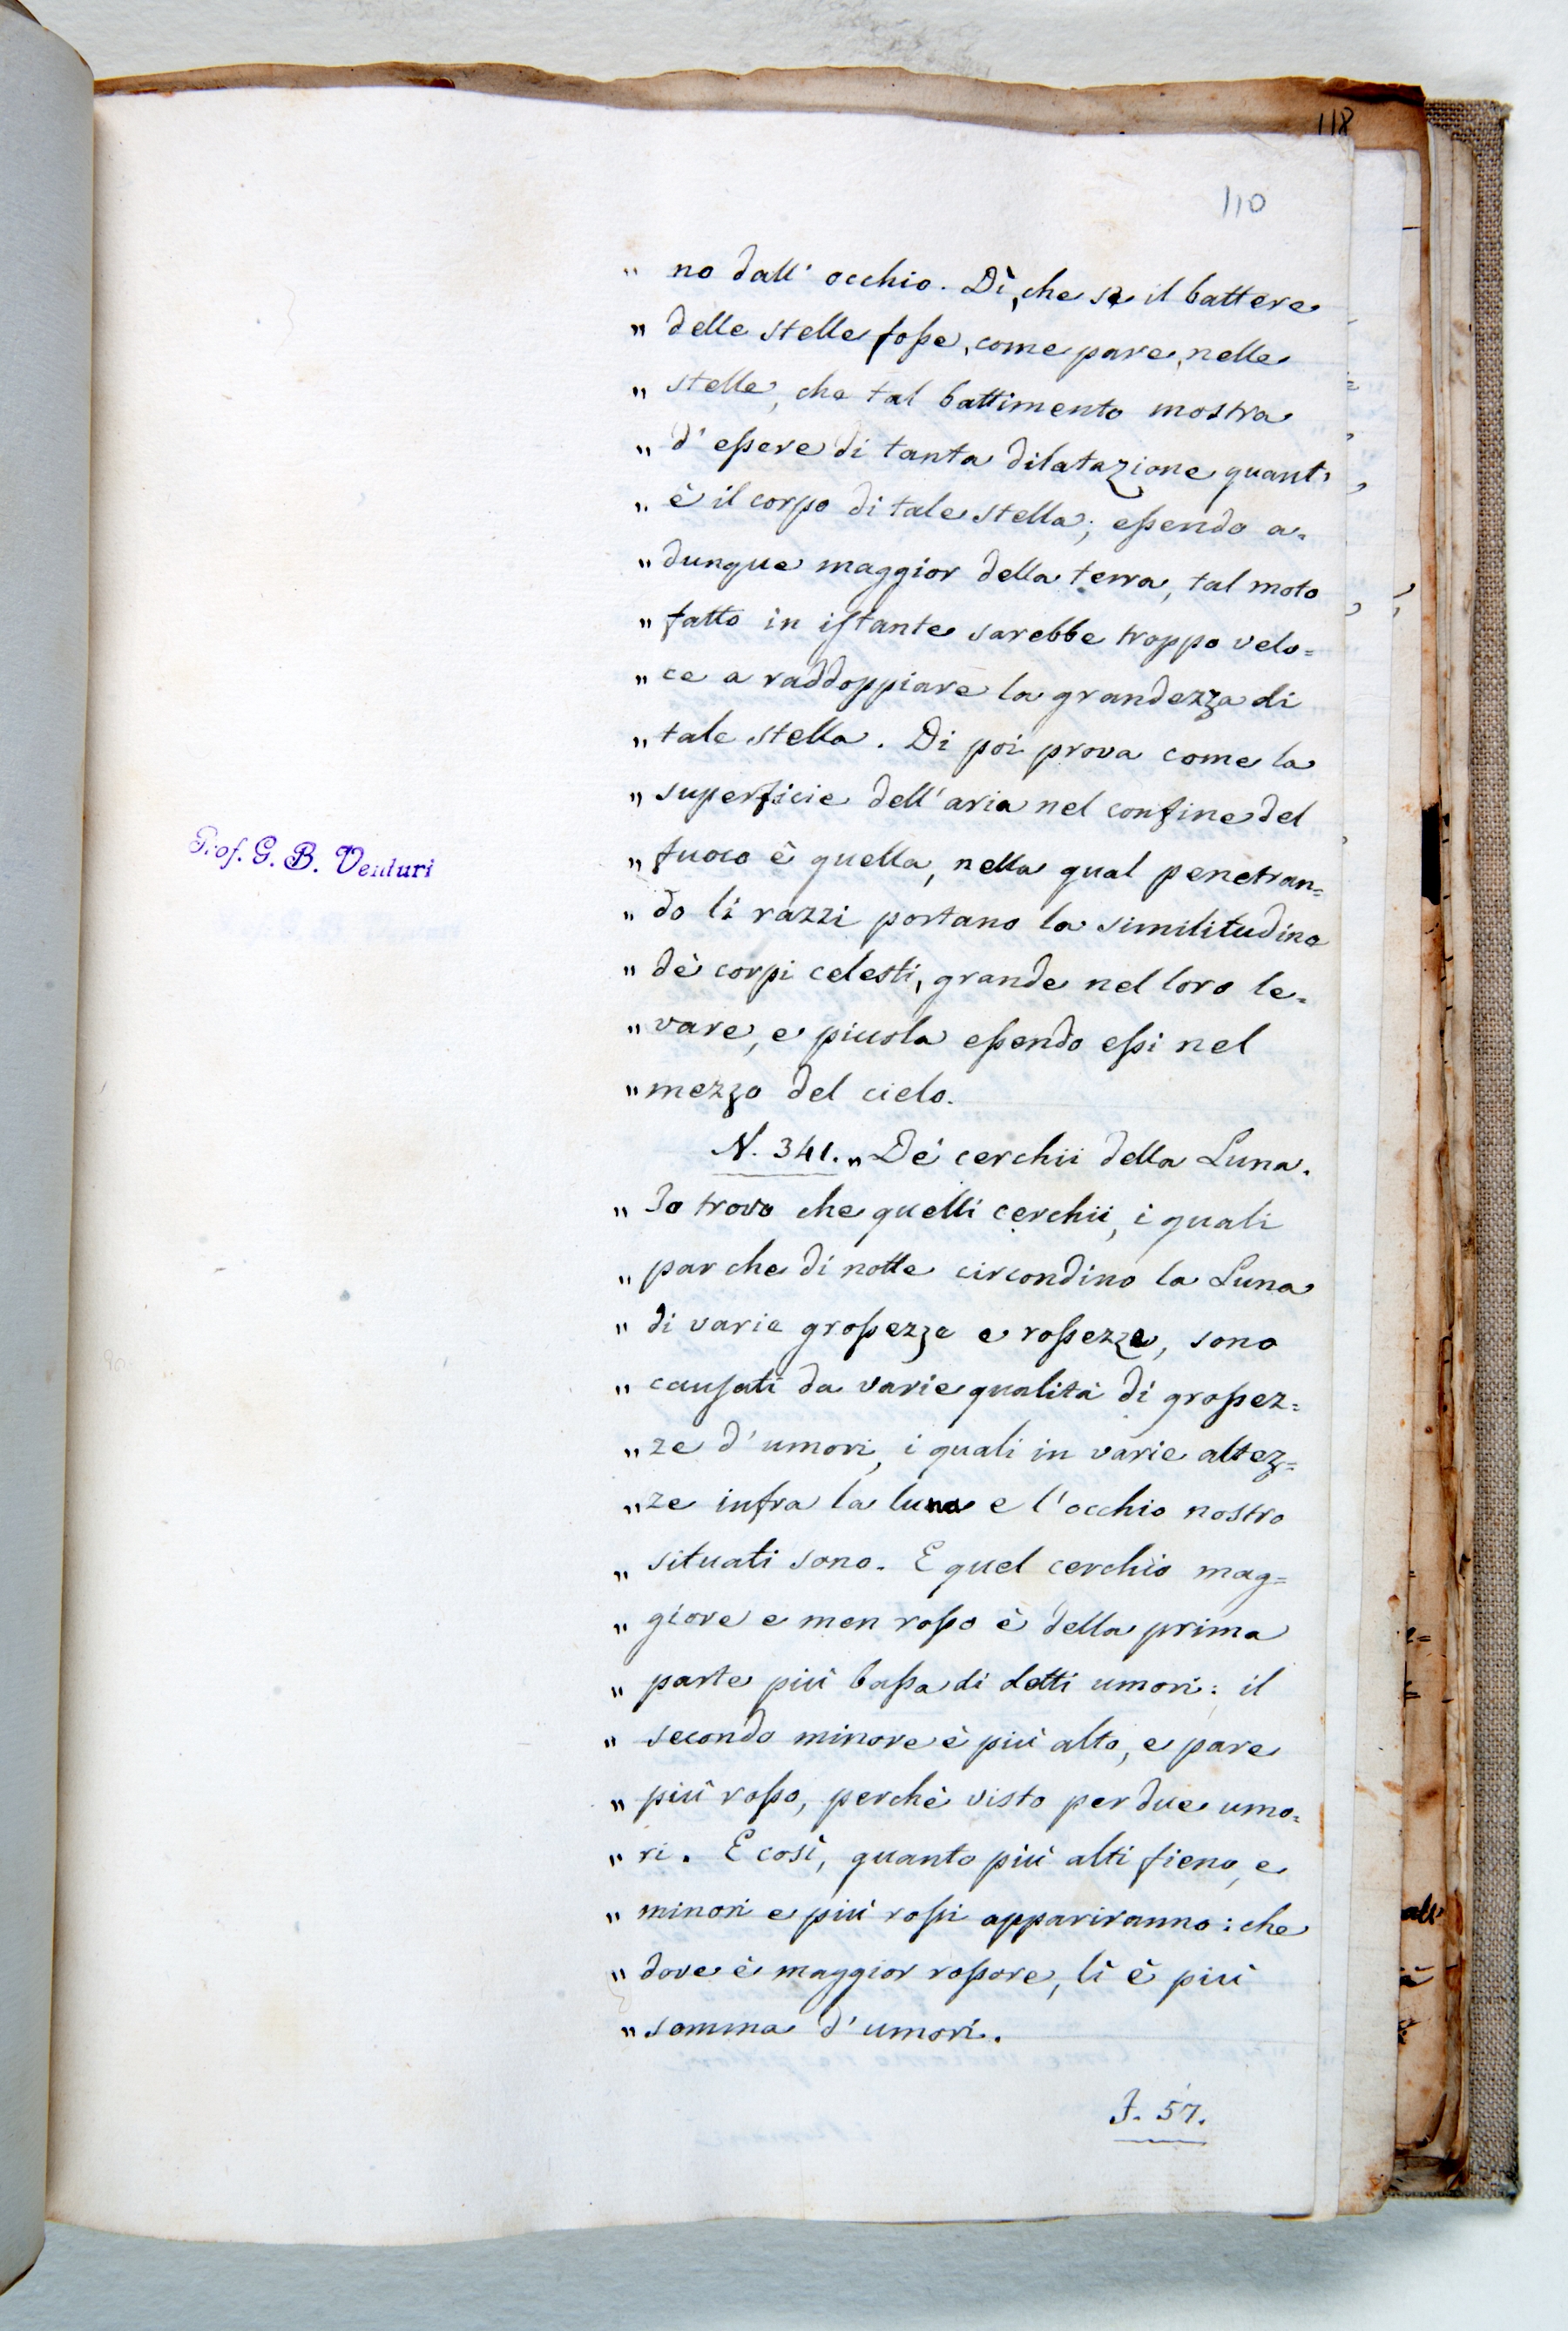 118
110
„ no dall' occhio. Dì, che se il battere
„ delle stelle foſse, come pare, nelle
„ stelle, che tal battimento mostra
„ d' eſsere di tanta dilatazione quant'
„ è il corpo di tale stella; eſsendo a=
„ dunque maggior della terra, tal moto
„ fatto in iſtante sarebbe troppo velo=
„ ce a raddoppiare la grandezza di
„ tale stella. Di poi prova come la
„ superficie dell' aria nel confine del
Prof. G. B. Venturi
„ fuoco è quella, nella qual penetran=
„ do li razzi portano la similitudine
„ dè corpi celesti, grande nel loro le=
„ vare, e picola eſsendo eſsi nel
„ mezzo del cielo.
N. 341. „ De' cerchii della Luna.
„ Io trovo che quelli cerchii, i quali
„ par che di notte circondino la Luna
„ di varie groſsezze e roſsezze, sono
„ cauſati da varie qualità di groſsez=
„ ze d' umori, i quali in varie altez=
„ ze infra la luna e l' occhio nostro
„ situati sono. E quel cerchio mag=
„ giore e men roſso è della prima
„ parte più baſsa di detti umori: il
„ secondo minore è più alto, e pare
„ più roſso, perchè visto per due umo=
„ ri. E così, quanto più alti fieno, e
„ minori e più roſsi appariranno: che
„ dove è maggior roſsore, lì è più
„ somma d' umori.
F. 57.